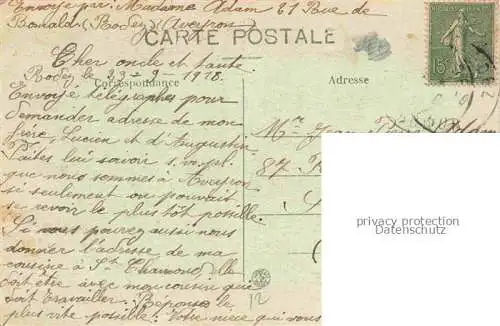 Envoyé par Madame Adam 21 Rue de
Bonald (Rodez) (Aveyron)
CARTE POSTALE
Cher oncle et tante
Rodez le 23-9-1918.
Correspondance
Adresse
Envoyé télégraphes pour
demander adresse de mon
frère, Lucien et d'Augustin
Faites lui savoir s. v. pl.
que nous sommes à Aveyron
si seulement on pouvait
se revoir le plus tôt possible.
Si vous pouvez aussi nous
donner l'adresse de ma
cousine à St Chamond, elle
doit être avec mon cousine qui
doit travailler. Réponse le
plus vite possible. Votre nièce qui vous
Mr Jean
87 R
15c
12
privacy protection
Datenschutz